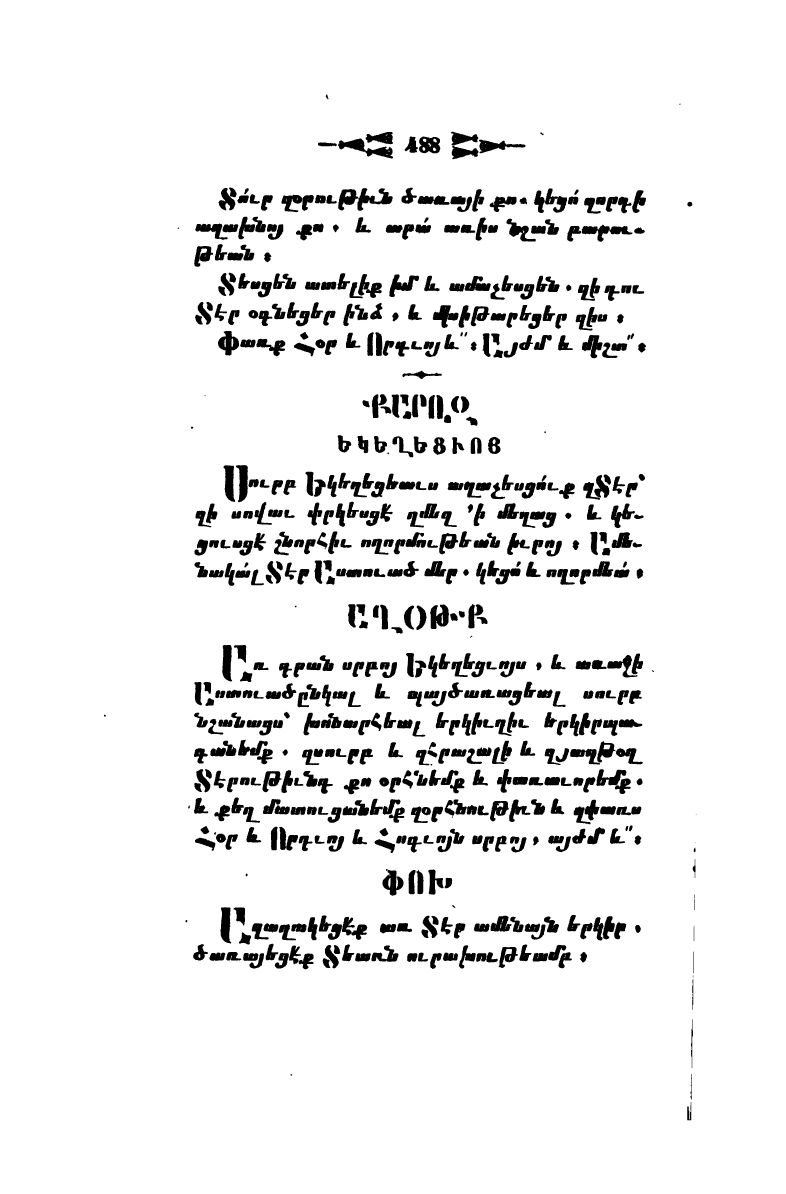 488
Տո՛ւր զօրութիւն ծառայի քո. կեցո՛ զորդի
աղախնոյ քո, և արա՛ առիս նշան բարու-
թեան ։
Տեսցեն ատելիք իմ և ամաչեսցեն. զի դու
Տէր օգնեցեր ինձ, և մխիթարեցեր զիս ։
Փառք Հօր և Որդւոյ և՛՛ ։ Այժմ և միշտ՛՛ ։
ՔԱՐՈԶ
ԵԿԵՂԵՑԻՈՅ
Սուրբ Եկեղեցեաւս աղաչեսցուք զՏէր՝
զի սովաւ փրկեսցէ զմեզ ՚ի մեղաց. և կե-
ցուսցէ շնորհիւ ողորմութեան իւրոյ ։ Ամե-
նակալ Տէր Աստուած մեր. կեցո՛ և ողորմեա՛ ։
ԱՂՕԹՔ
Առ դրան սրբոյ Եկեղեցւոյս, և առաջի
Աստուածընկալ և պայծառացեալ սուրբ
նշանացս՝ խոնարհեալ երկիւղիւ երկիրպա-
գանեմք. զսուրբ և զհրաշալի և զյաղթօղ
Տէրութիւնդ քո օրհնեմք և փառաւորեմք.
և քեզ մատուցանեմք զօրհնութիւն և զփառս
Հօր և Որդւոյ և Հոգւոյն սրբոյ, այժմ և՛՛ ։
ՓՈԽ
Աղաղակեցէք առ Տէր ամենայն երկիր,
ծառայեցէք Տեառն ուրախութեամբ ։